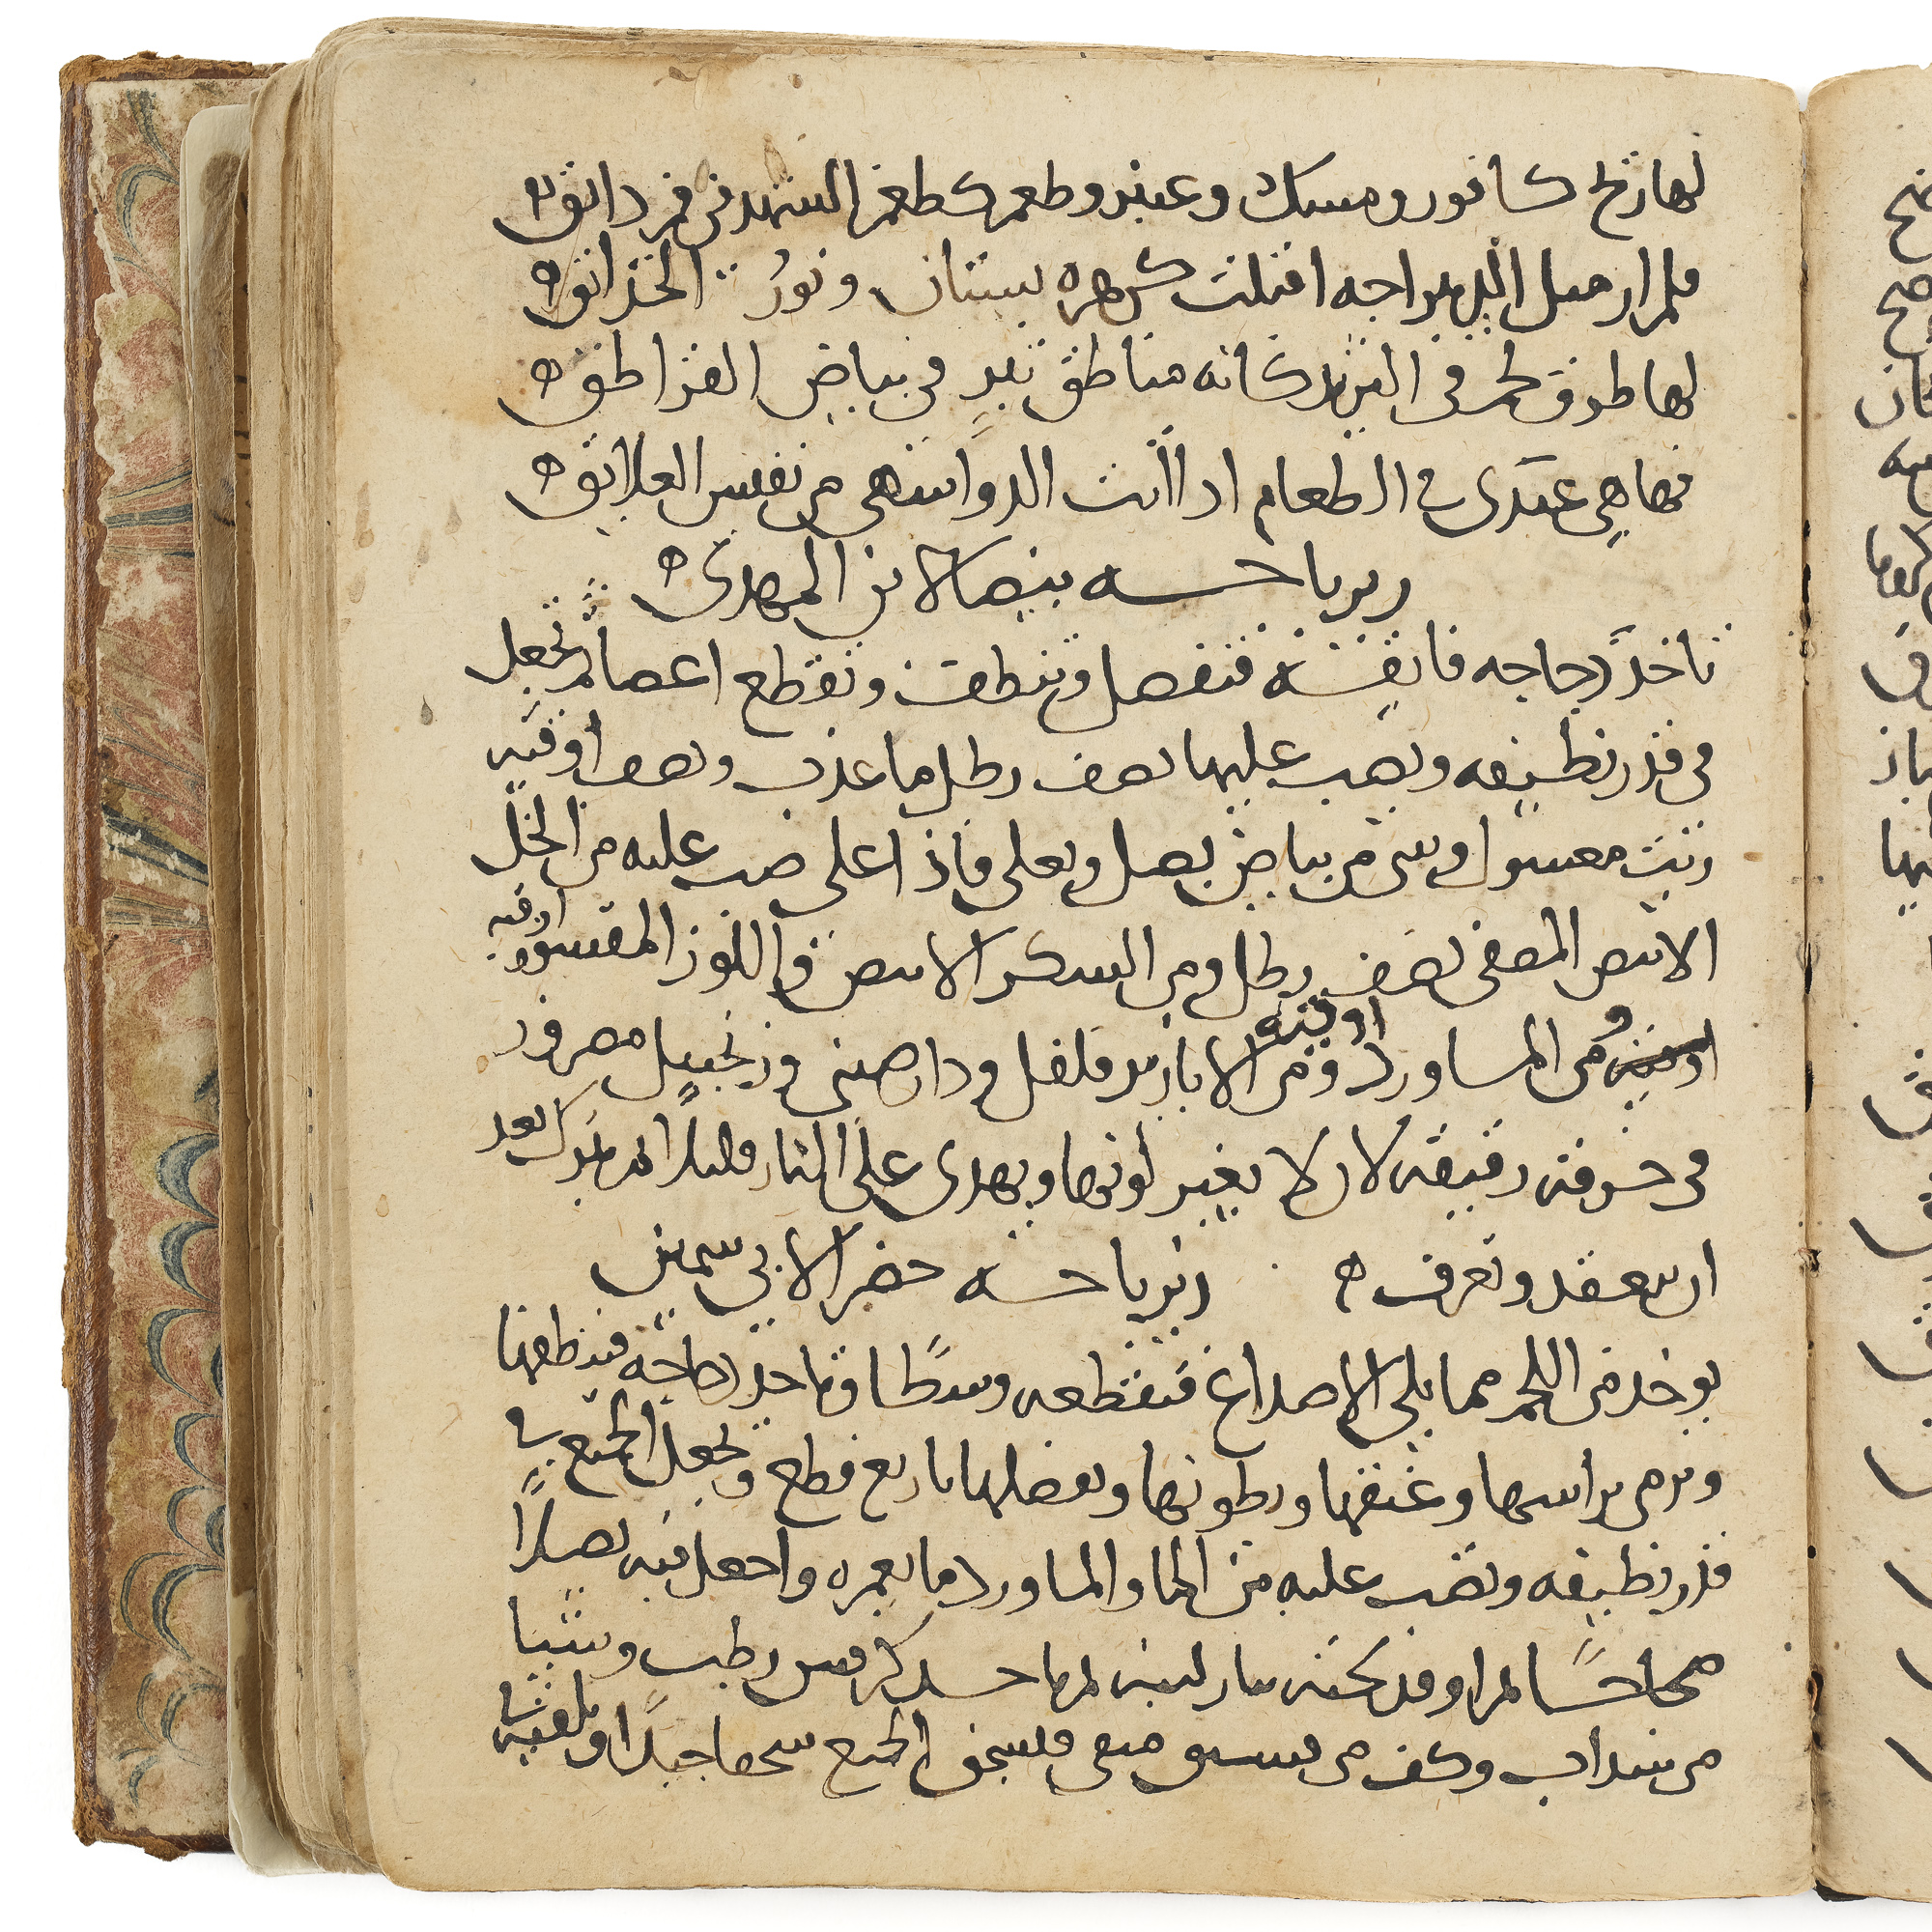 لها ريح كافور ومسك وعنبر وطعم كطعم الشهد في فم ذائق
فلم ار مثل الزيرباجه اقبلت كزهره بستان ونور الحدائق
لها طوق لحم في الثريد كانه مناطق تبر في بياض القراطق
فما هي عندي في الطعام اذا اتت الذ واشهى من نفيس العلائق
زيرباجه بيضا لابن المهدي
تاخذ دجاجه فايقه فتفصل وتنظف وتقطع اعضا ثم تجعل
في قدر نظيفه ويصب عليها نصف رطل ما عذب ونصف اوقيه
زيت مغسول وشي من بياض بصل ويغلى فاذا غلى صب عليه من الخل
الابيض المصفى نصف رطل ومن السكر الابيض والللوز المقشور اوقيه
ومن الماورد اوقيه ومن الابازير فلفل ودارصيني وزنجبيل مصرور
في خرقه رقيقه لان لا يغير لونها ويهدى على النار قليلا ثم يترك بعد
ان ينعقد وتغرف زيرباجه خضر الابي سمين
يوخذ من اللحم مما يلي الاصداغ فتقطعه وسطا وتاخذ دجاجه فتنظفها
وترمي براسها وعنقها وبطونها وتفصلها باربع قطع وتجعل الجميع في
قدر نظيفه وتصب عليه من الما والماورد ما يغمره واجعل فيه بصلا
صحاحا كرفس رطب وشيا
من سداب وكف من فستق منقى فيسحق الجميع سحقا جيدا ويلقيه في